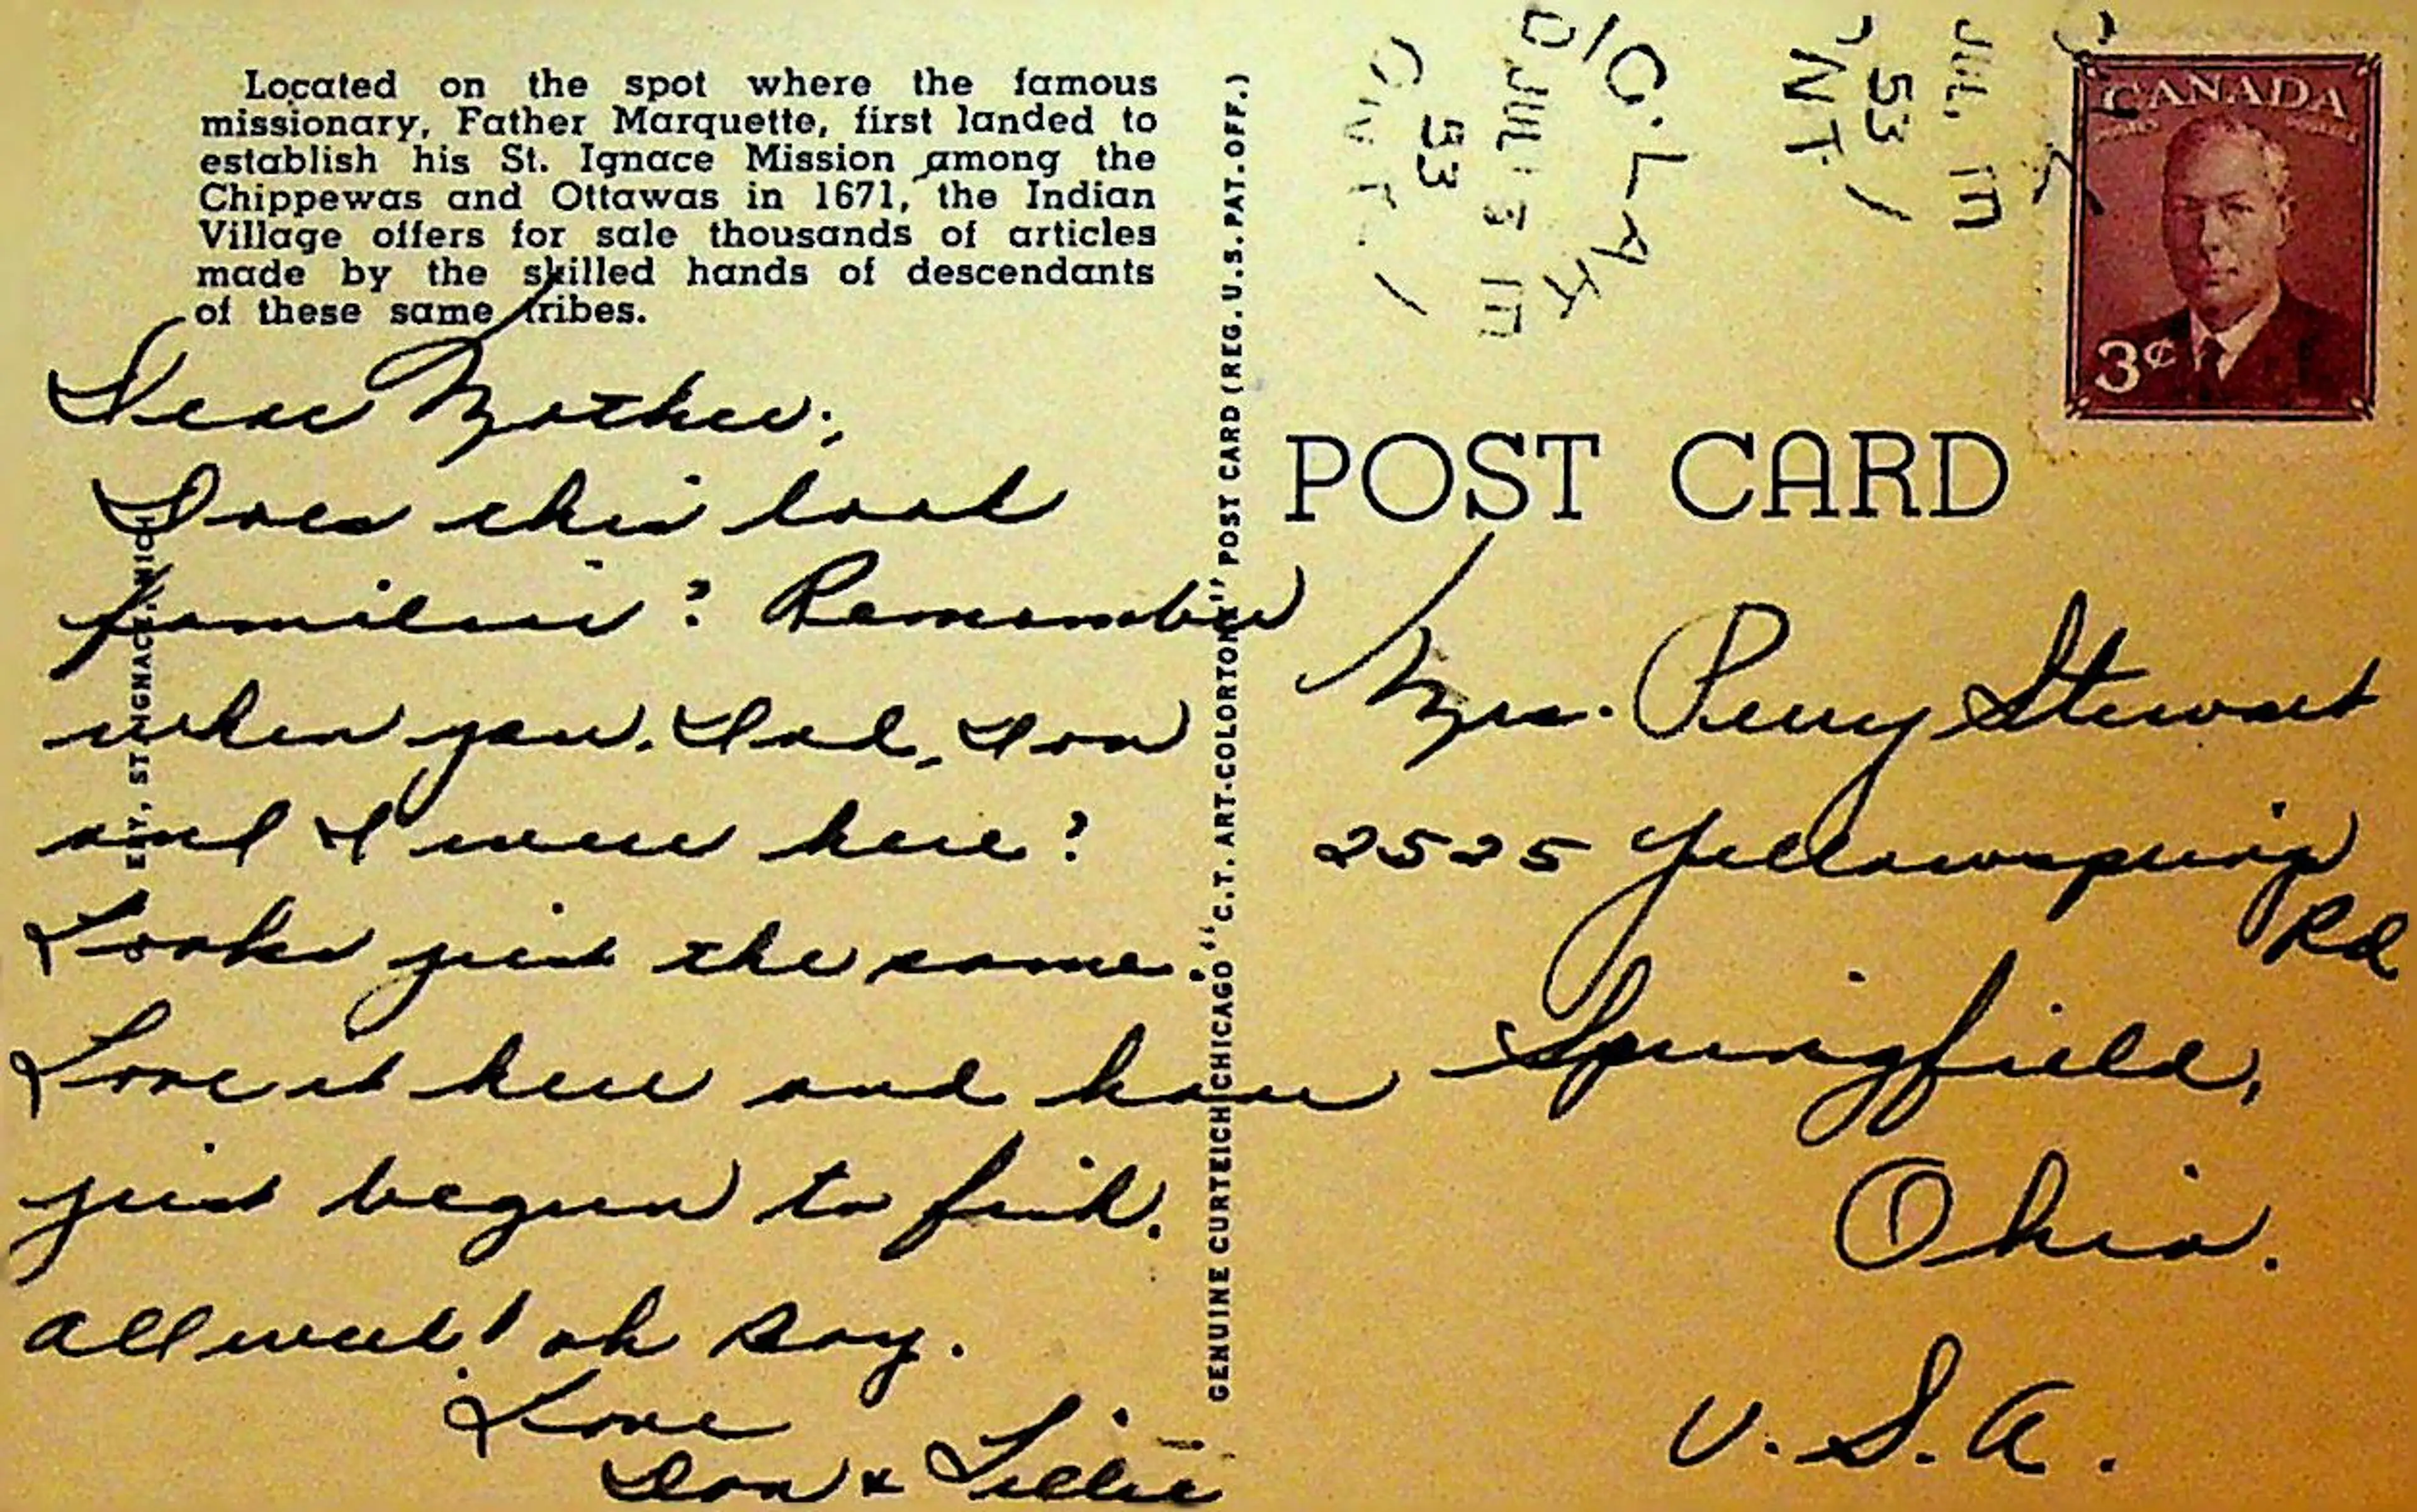 Located on the spot where the famous
missionary, Father Marquette, first landed to
establish his St. Ignace Mission among the
Chippewas and Ottawas in 1671, the Indian
Village offers for sale thousands of articles
made by the skilled hands of descendants
of these same tribes.
Dear Mother;
Does this look
familiar? Remember
when you, Dad, Don
and I were here?
Looks just the same.
Love it here and have
just begun to fish.
all week! oh boy.
Love
Don & Lillie
ST. IGNACE, MICH.
GENUINE CURTEICH CHICAGO "C.T. ART-COLORTONE" POST CARD (REG. U.S. PAT. OFF.)
JUL 13
53
JUL
53
ONT
CANADA
3¢
POST CARD
Mrs. Perry Stewart
2525 Yellowspring
Rd
Springfield,
Ohio.
U.S.A.